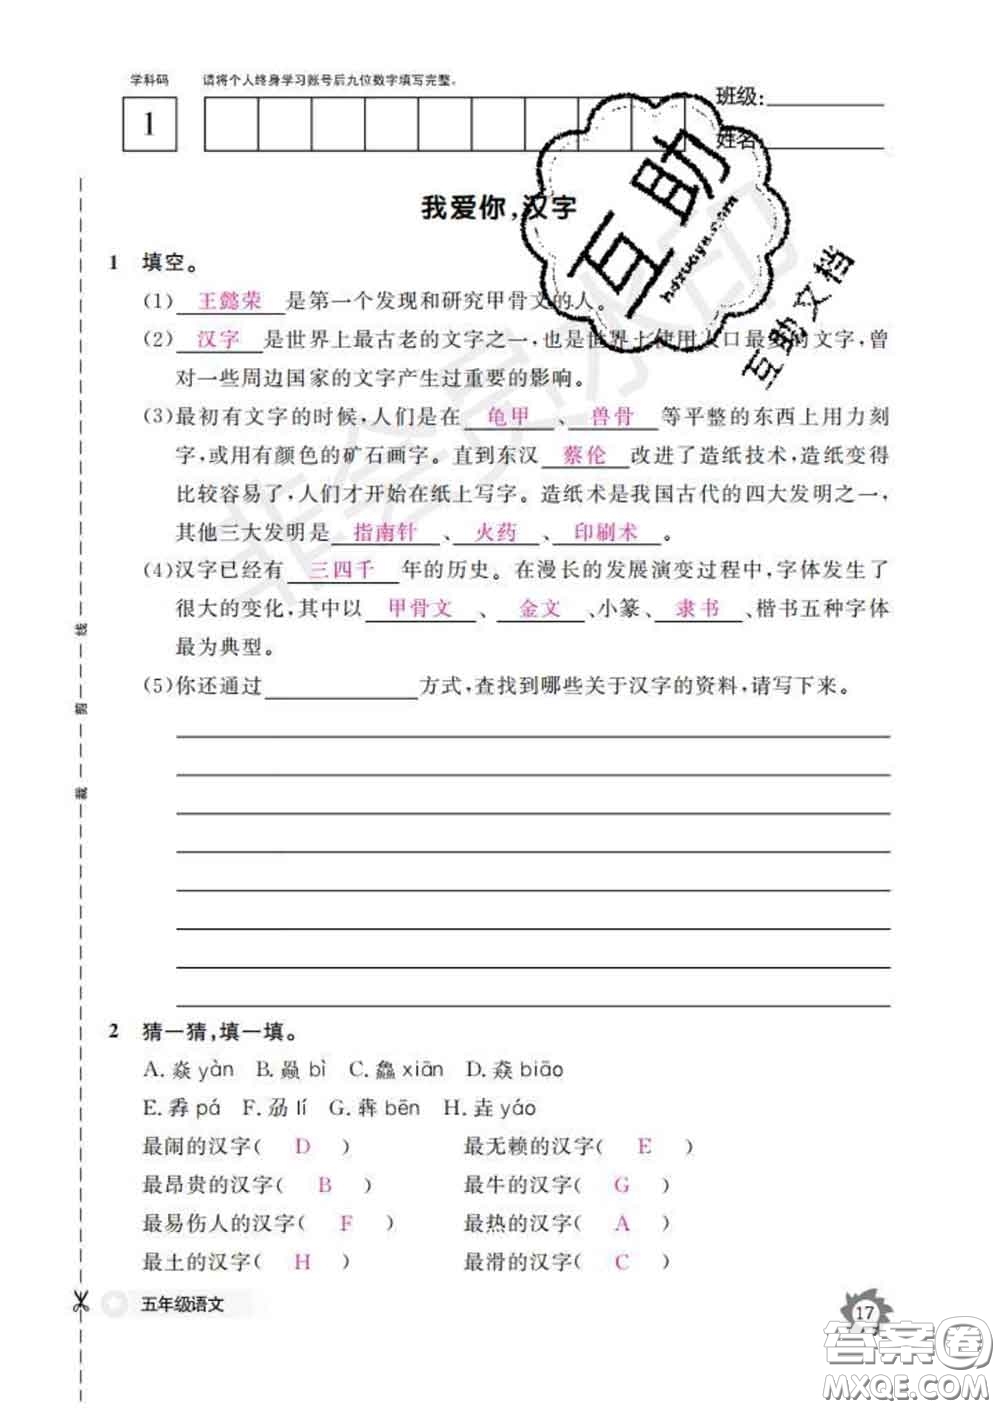 学科码 请将个人终身学习账号后九位数字填写完整。
1
班级:
姓名
我爱你,汉字
1 填空。
(1) 王懿荣 是第一个发现和研究甲骨文的人。
(2) 汉字 是世界上最古老的文字之一,也是世界上使用人口最多的文字,曾
对一些周边国家的文字产生过重要的影响。
(3)最初有文字的时候,人们是在 龟甲 、 兽骨 等平整的东西上用力刻
字,或用有颜色的矿石画字。直到东汉 蔡伦 改进了造纸技术,造纸变得
比较容易了,人们才开始在纸上写字。造纸术是我国古代的四大发明之一,
其他三大发明是 指南针 、 火药 、 印刷术 。
(4)汉字已经有 三四千 年的历史。在漫长的发展演变过程中,字体发生了
很大的变化,其中以 甲骨文 、 金文 、小篆、 隶书 、楷书五种字体
最为典型。
(5)你还通过 方式,查找到哪些关于汉字的资料,请写下来。
2 猜一猜,填一填。
A. 焱 yàn B. 赑 bì C. 鱻 xiān D. 猋 biāo
E. 掱 pá F. 刕 lí G. 犇 bēn H. 垚 yáo
最闹的汉字( D ) 最无赖的汉字( E )
最昂贵的汉字( B ) 最牛的汉字( G )
最易伤人的汉字( F ) 最热的汉字( A )
最土的汉字( H ) 最滑的汉字( C )
五年级语文
17
裁 剪 线
互助
hdxuexi
互助文档
非会员水印
答案圈
MXQE.COM